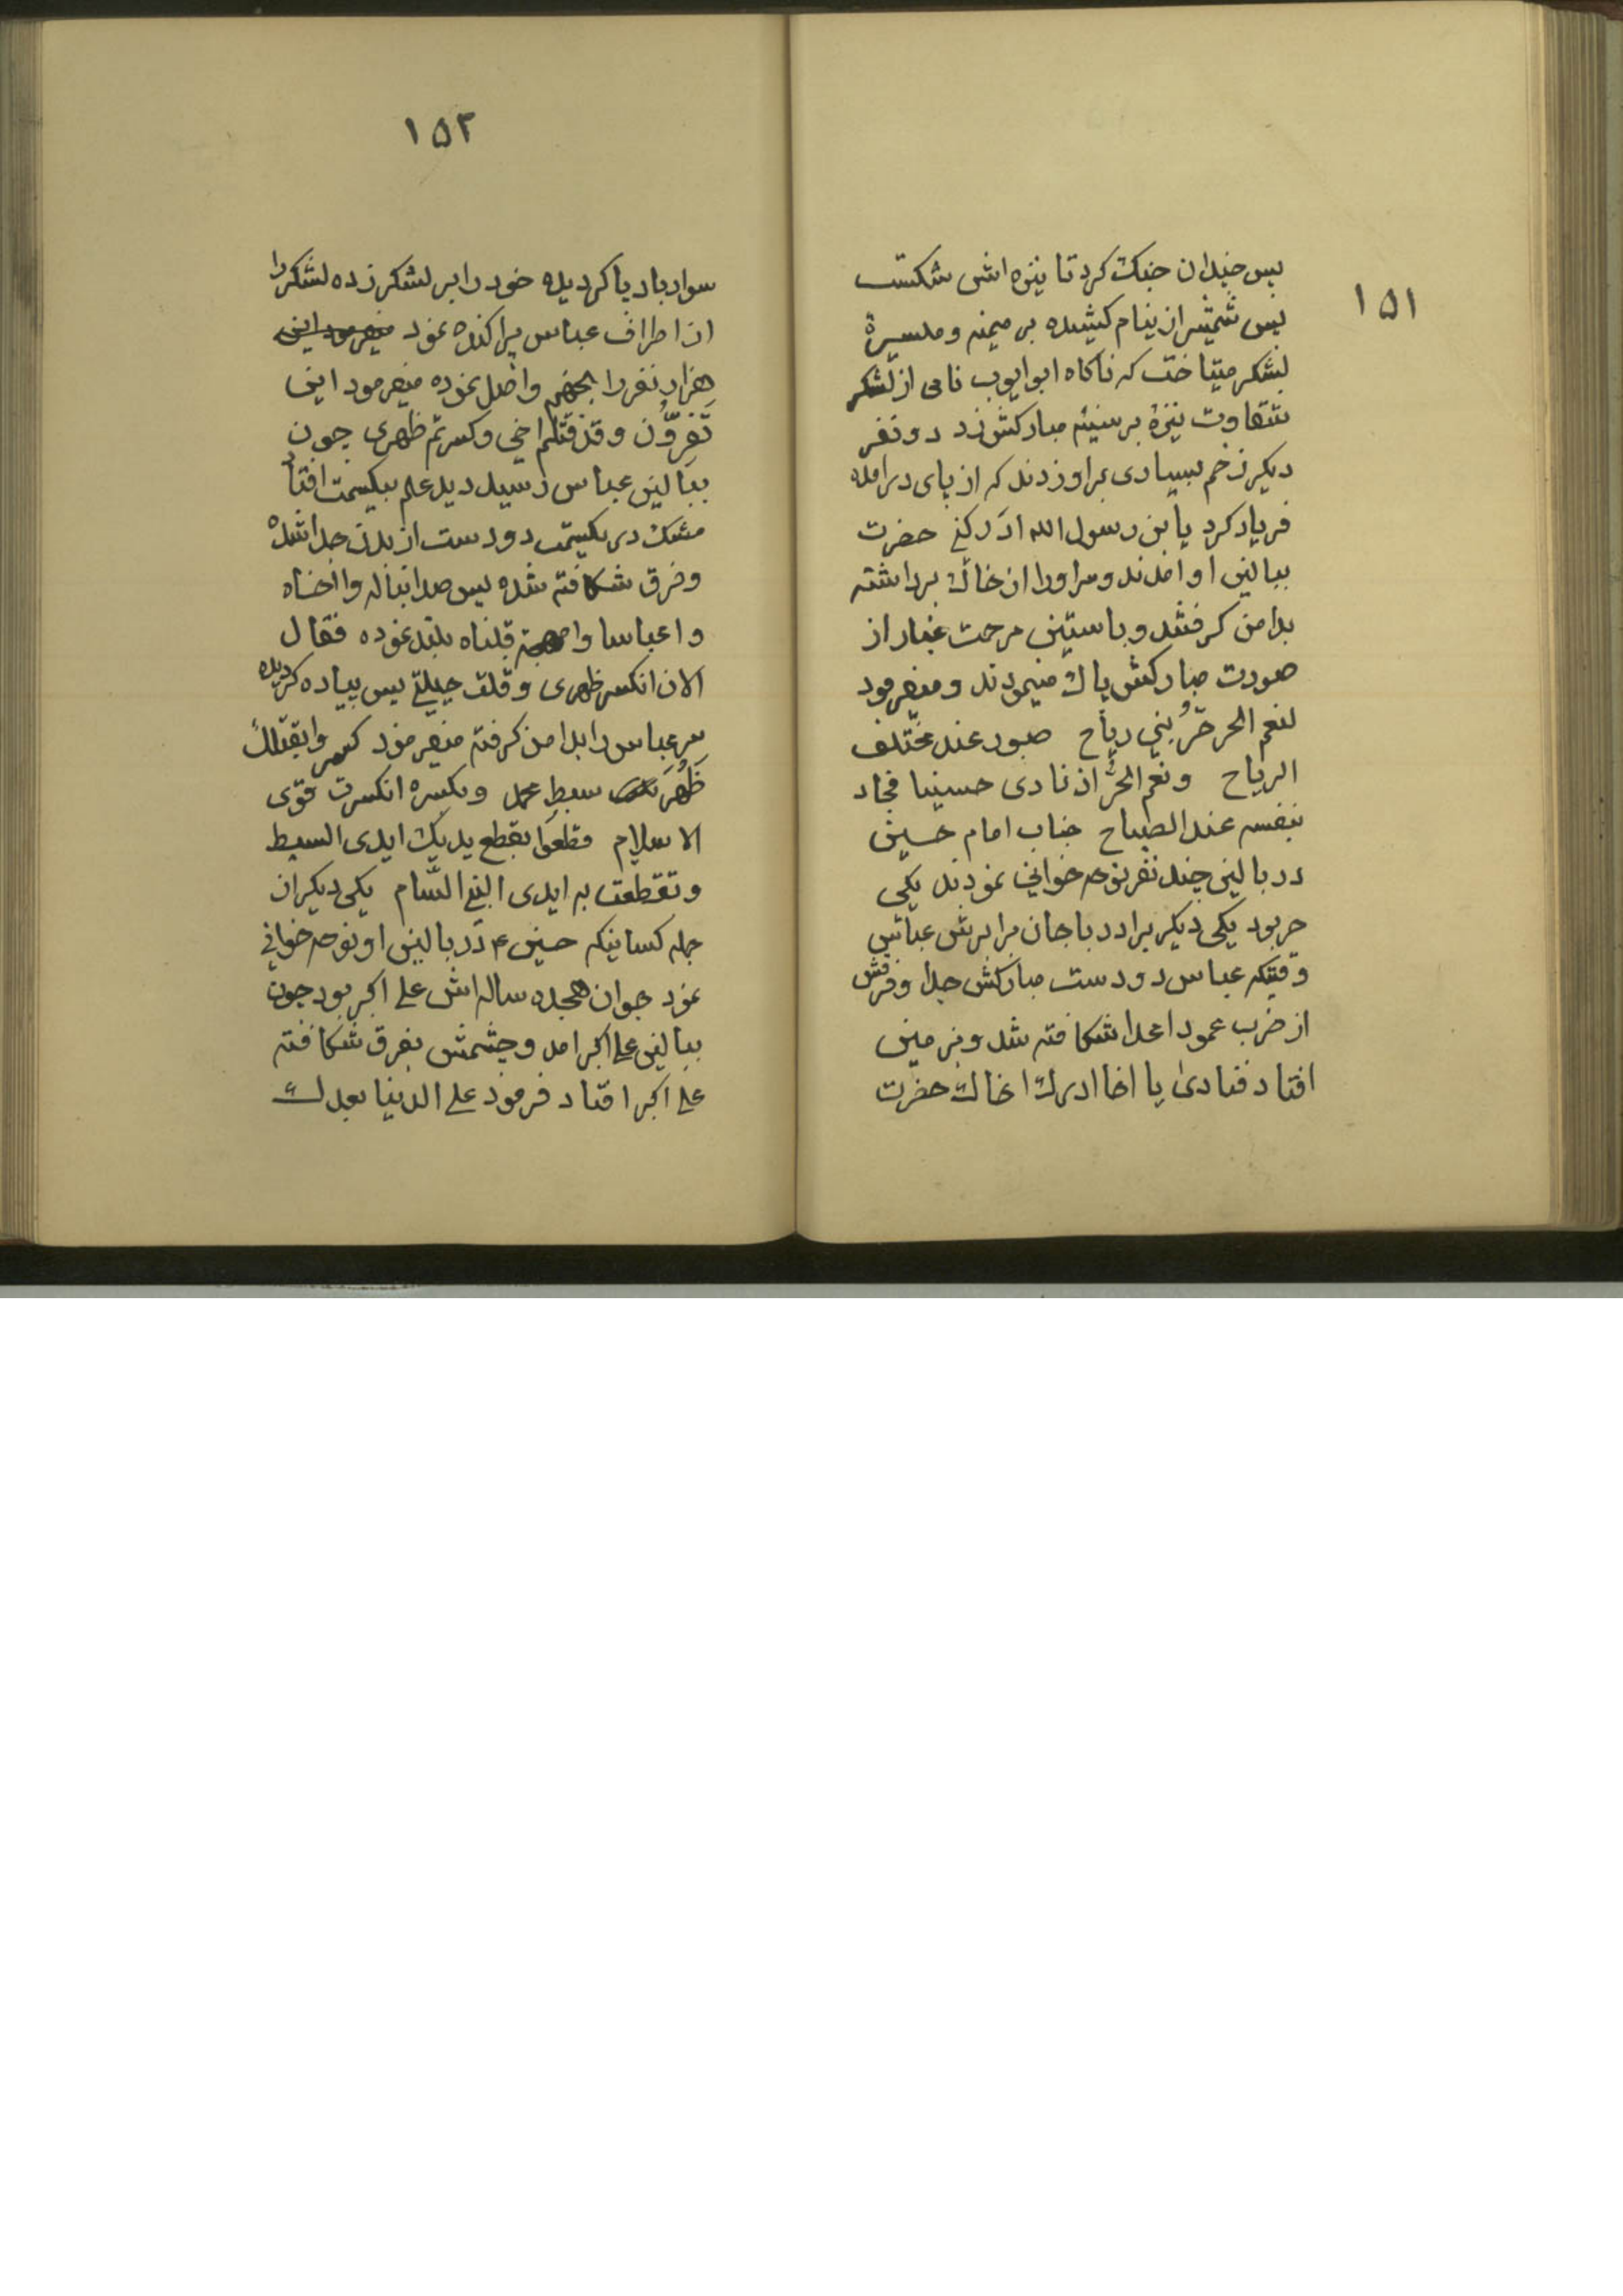 ۱۵۱
پس چندان جنک کرد تا نیزه اش شکست
پس شمشیر از نیام کشیده بر میمنه و میسرهٔ
لشکر میتاخت که ناکاه ابو ایوب نامی از لشکر
شقاوت نیزهٔ بر سینه مبارکش زد دو نفر
دیکر زخم بسیاری براو زدند که از پای درامده
فریاد کرد یابن رسول الله ادرکنی حضرت
ببالین او امدند و سر اورا از خاک برداشته
بدامن کرفتند و باستین مرحمت غبار از
صورت مبارکش پاک مینمودند و میفرمود
لنعم الحر حرّ بنی ریاح صبور عند مختلف
الریاح ونعم الحرّ اذ نادی حسینا فجاد
بنفسه عند الصیاح جناب امام حسین
در بالین چند نفر نوحه خوانی نمودند یکی
حر بود یکی دیکر برادر باجان برابرش عباس
وقتیکه عباس دو دست مبارکش جدا و فرقش
از ضرب عمود اعدا شکافته شد و بزمین
افتاد فنادی یا اخا ادرک اخاک حضرت
۱۵۲
سوار باد پا کردیده خود را بر لشکر زده لشکررا
از اطراف عباس پراکنده نمود میفرمود این
هزار نفر را بجهنم واصل نموده میفرمود این
تَفِرّوُن وقد قتلم اخی وکسرتم ظهری چون
ببالین عباس رسید دید علم بیکسمت افتاد
مشک در یکسمت دو دست از بدن جدا شده
و فرق شکافته شده پس صدا بناله وا اخاه
وا عباسا وا قلناه بلند نموده فقال
الان انکسر ظهری وقلت حیلتی پس پیاده کردیده
سر عباس را بدامن کرفته میفرمود کسروا بقتلک
ظَهْرَ سبط محمد وبکسره انکسرت قوی
الاسلام قطعوا بقطع یدیک ایدی السبط
وتقطعت به ایدی النبی السّام یکی دیکر از
جمله کسانیکه حسین ۴ در بالین او نوحه خوانی
نمود جوان هجده ساله اش علی اکبر بود چون
ببالین علی اکبر امد و چشمش بفرق شکافته
علی اکبر افتاد فرمود علی الدنیا بعدک